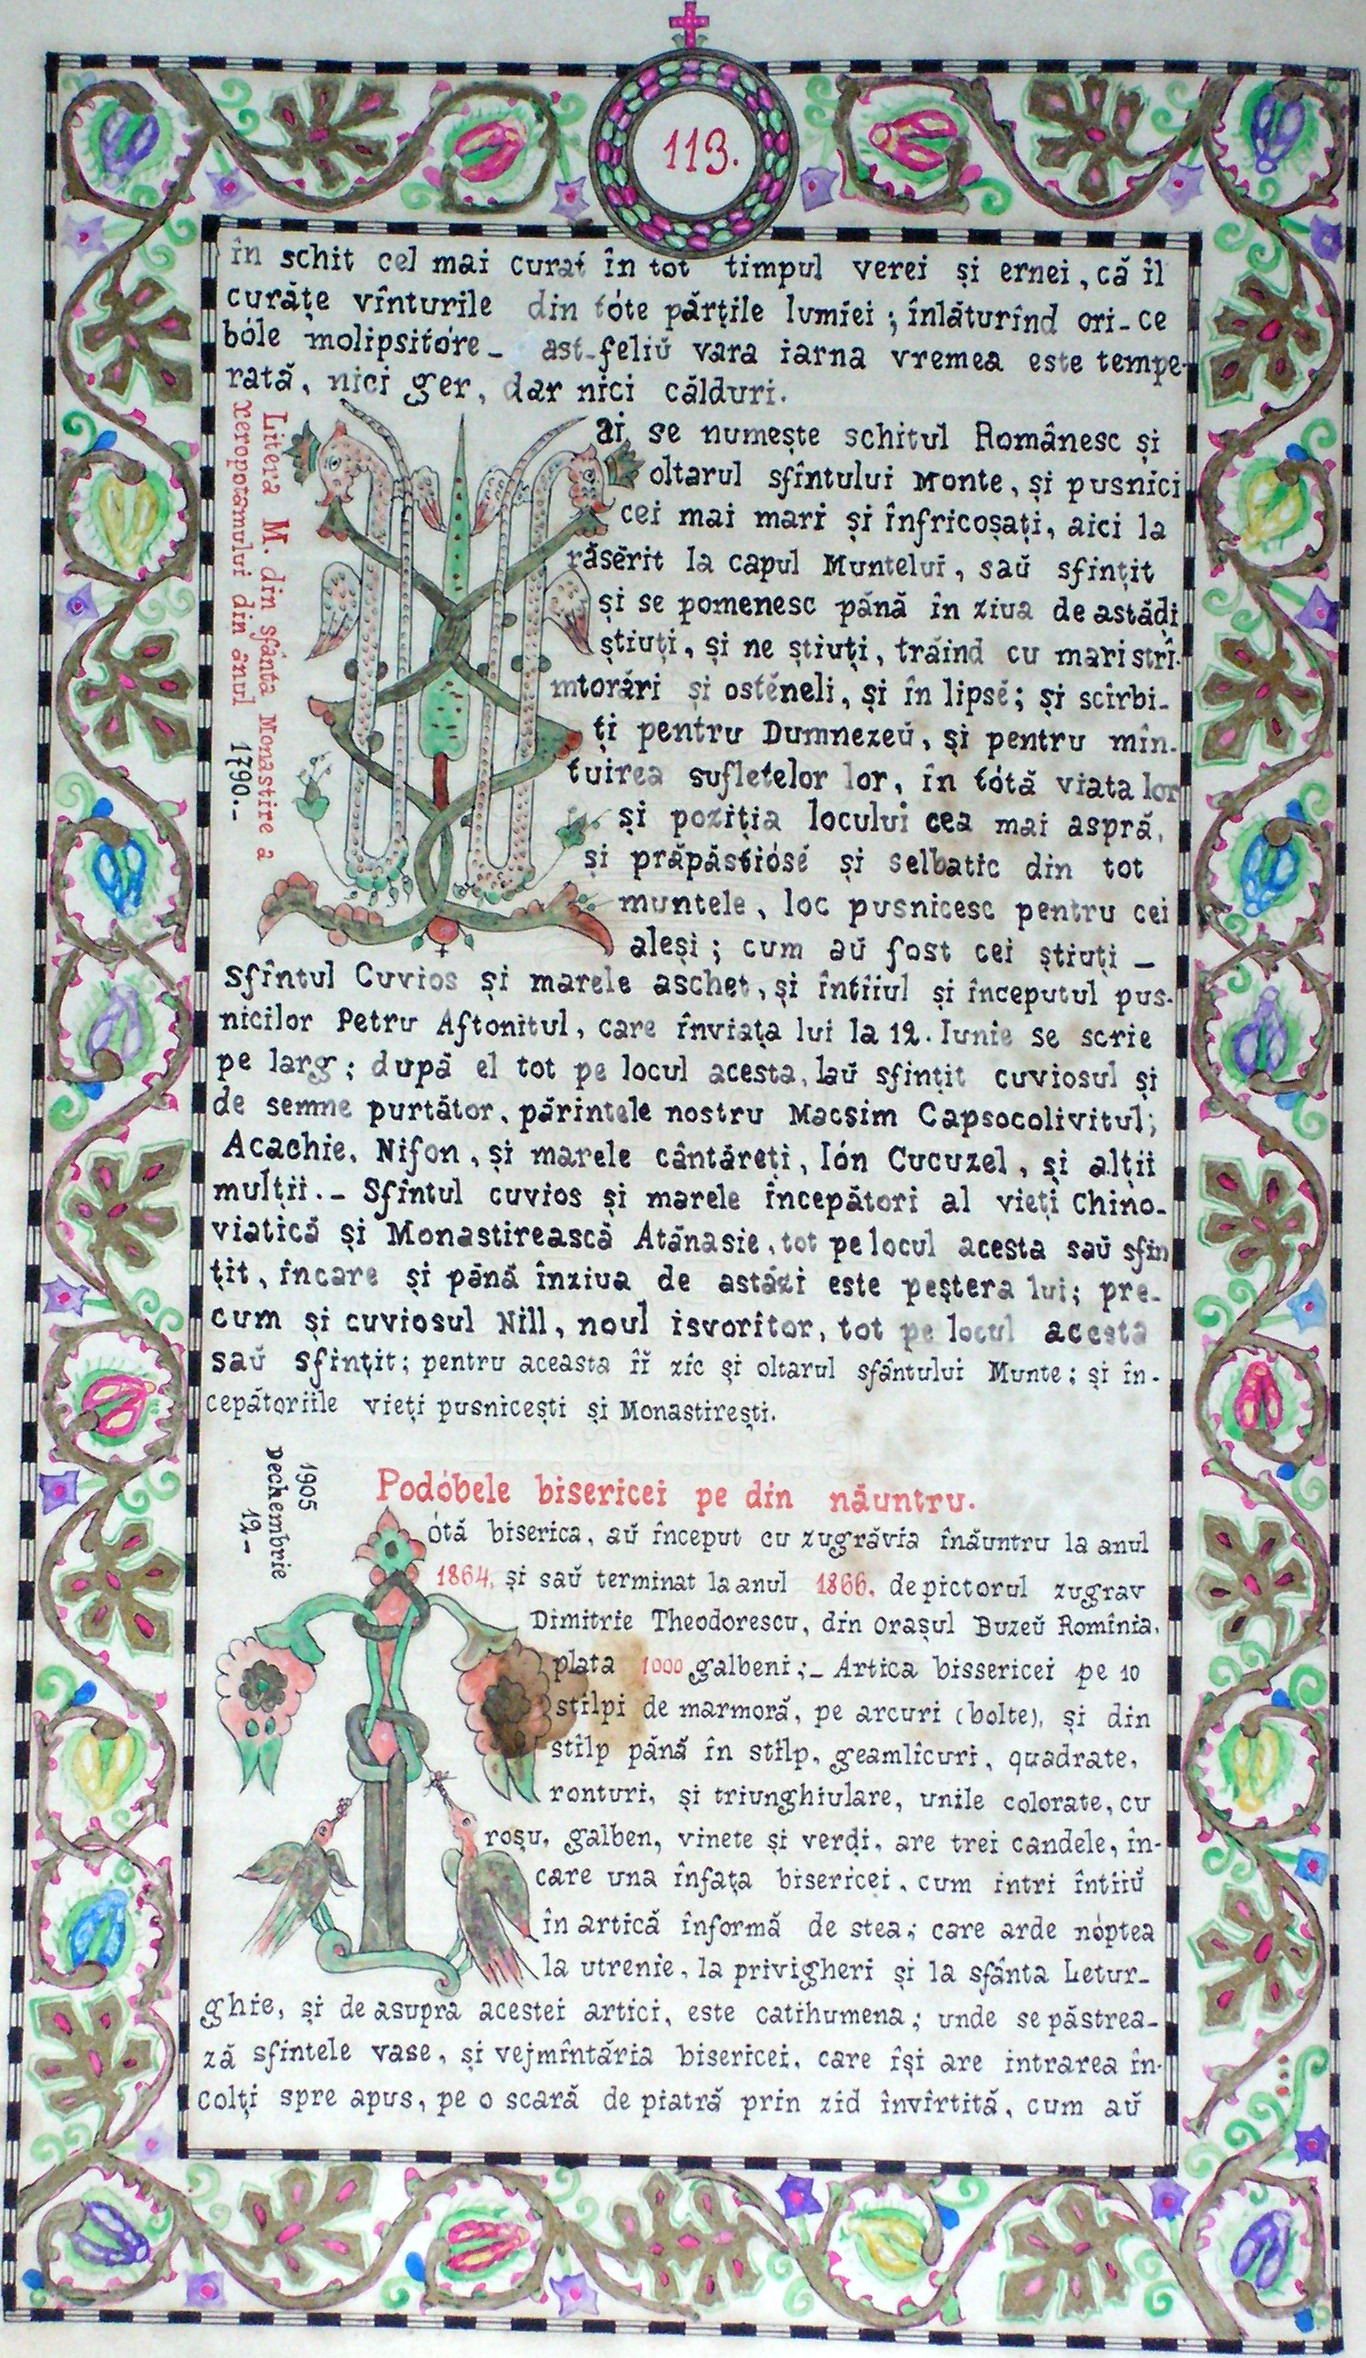 113.
în schit cel mai curat în tot timpul verei și ernei, că îl
curățe vînturile din tóte părțile lumiei; înlăturînd ori-ce
bóle molipsitóre_ ast-feliŭ vara iarna vremea este tempe-
rată, nici ger, dar nici călduri.
Litera M. din sfânta Monastire a
xeropotamului din anul 1790._
ai, se numește schitul Românesc și
oltarul sfîntului Monte, și pusnici
cei mai mari și înfricoșați, aici la
răsĕrit la capul Muntelui, saŭ sfințit
și se pomenesc pănă în ziua de astădi
știuți, și ne știuți, trăind cu mari strî-
mtorări și ostĕneli, și în lipsĕ; și scîrbi-
ți pentru Dumnezeŭ, și pentru mîn-
tuirea sufletelor lor, în tótă viata lor
și poziția locului cea mai aspră,
și prăpăstiósĕ și selbatic din tot
muntele, loc pusnicesc pentru cei
aleși; cum aŭ fost cei știuți _
sfîntul Cuvios și marele aschet, și întîiul și începutul pus-
nicilor Petru Aftonitul, care înviața lui la 12. Iunie se scrie
pe larg; după el tot pe locul acesta, laŭ sfințit cuviosul și
de semne purtător, părintele nostru Macsim Capsocolivitul;
Acachie, Nifon, și marele cântăreți, Ión Cucuzel, și alții
mulții._ Sfîntul cuvios și marele începători al vieți Chino-
viatică și Monastirească Atănasie, tot pe locul acesta saŭ sfin
țit, încare și pănă înziua de astăzi este peștera lui; pre-
cum și cuviosul Nill, noul isvorîtor, tot pe locul acesta
saŭ sfințit; pentru aceasta îĭ zic și oltarul sfântului Munte; și în-
cepătoriile vieți pusnicești și Monastirești.
1905
Dechembrie
12_
Podóbele bisericei pe din năuntru.
ótă biserica, aŭ început cu zugrăvia înăuntru la anul
1864, și saŭ terminat la anul 1866, de pictorul zugrav
Dimitrie Theodorescu, din orașul Buzeŭ Romînia,
plata 1000 galbeni;_ Artica bissericei pe 10
stîlpi de marmoră, pe arcuri (bolte), și din
stîlp pănă în stîlp, geamlîcuri, quadrate,
ronturi, și triunghiulare, unile colorate, cu
roșu, galben, vinete și verdi, are trei candele, în-
care una înfața bisericei, cum intri întîiŭ
în artică înformă de stea; care arde nóptea
la utrenie, la privigheri și la sfânta Letur-
ghie, și de asupra acestei artici, este catihumena; unde se păstrea-
ză sfintele vase, și vejmîntăria bisericei, care își are intrarea în-
colți spre apus, pe o scară de piatră prin zid învîrtită, cum aŭ